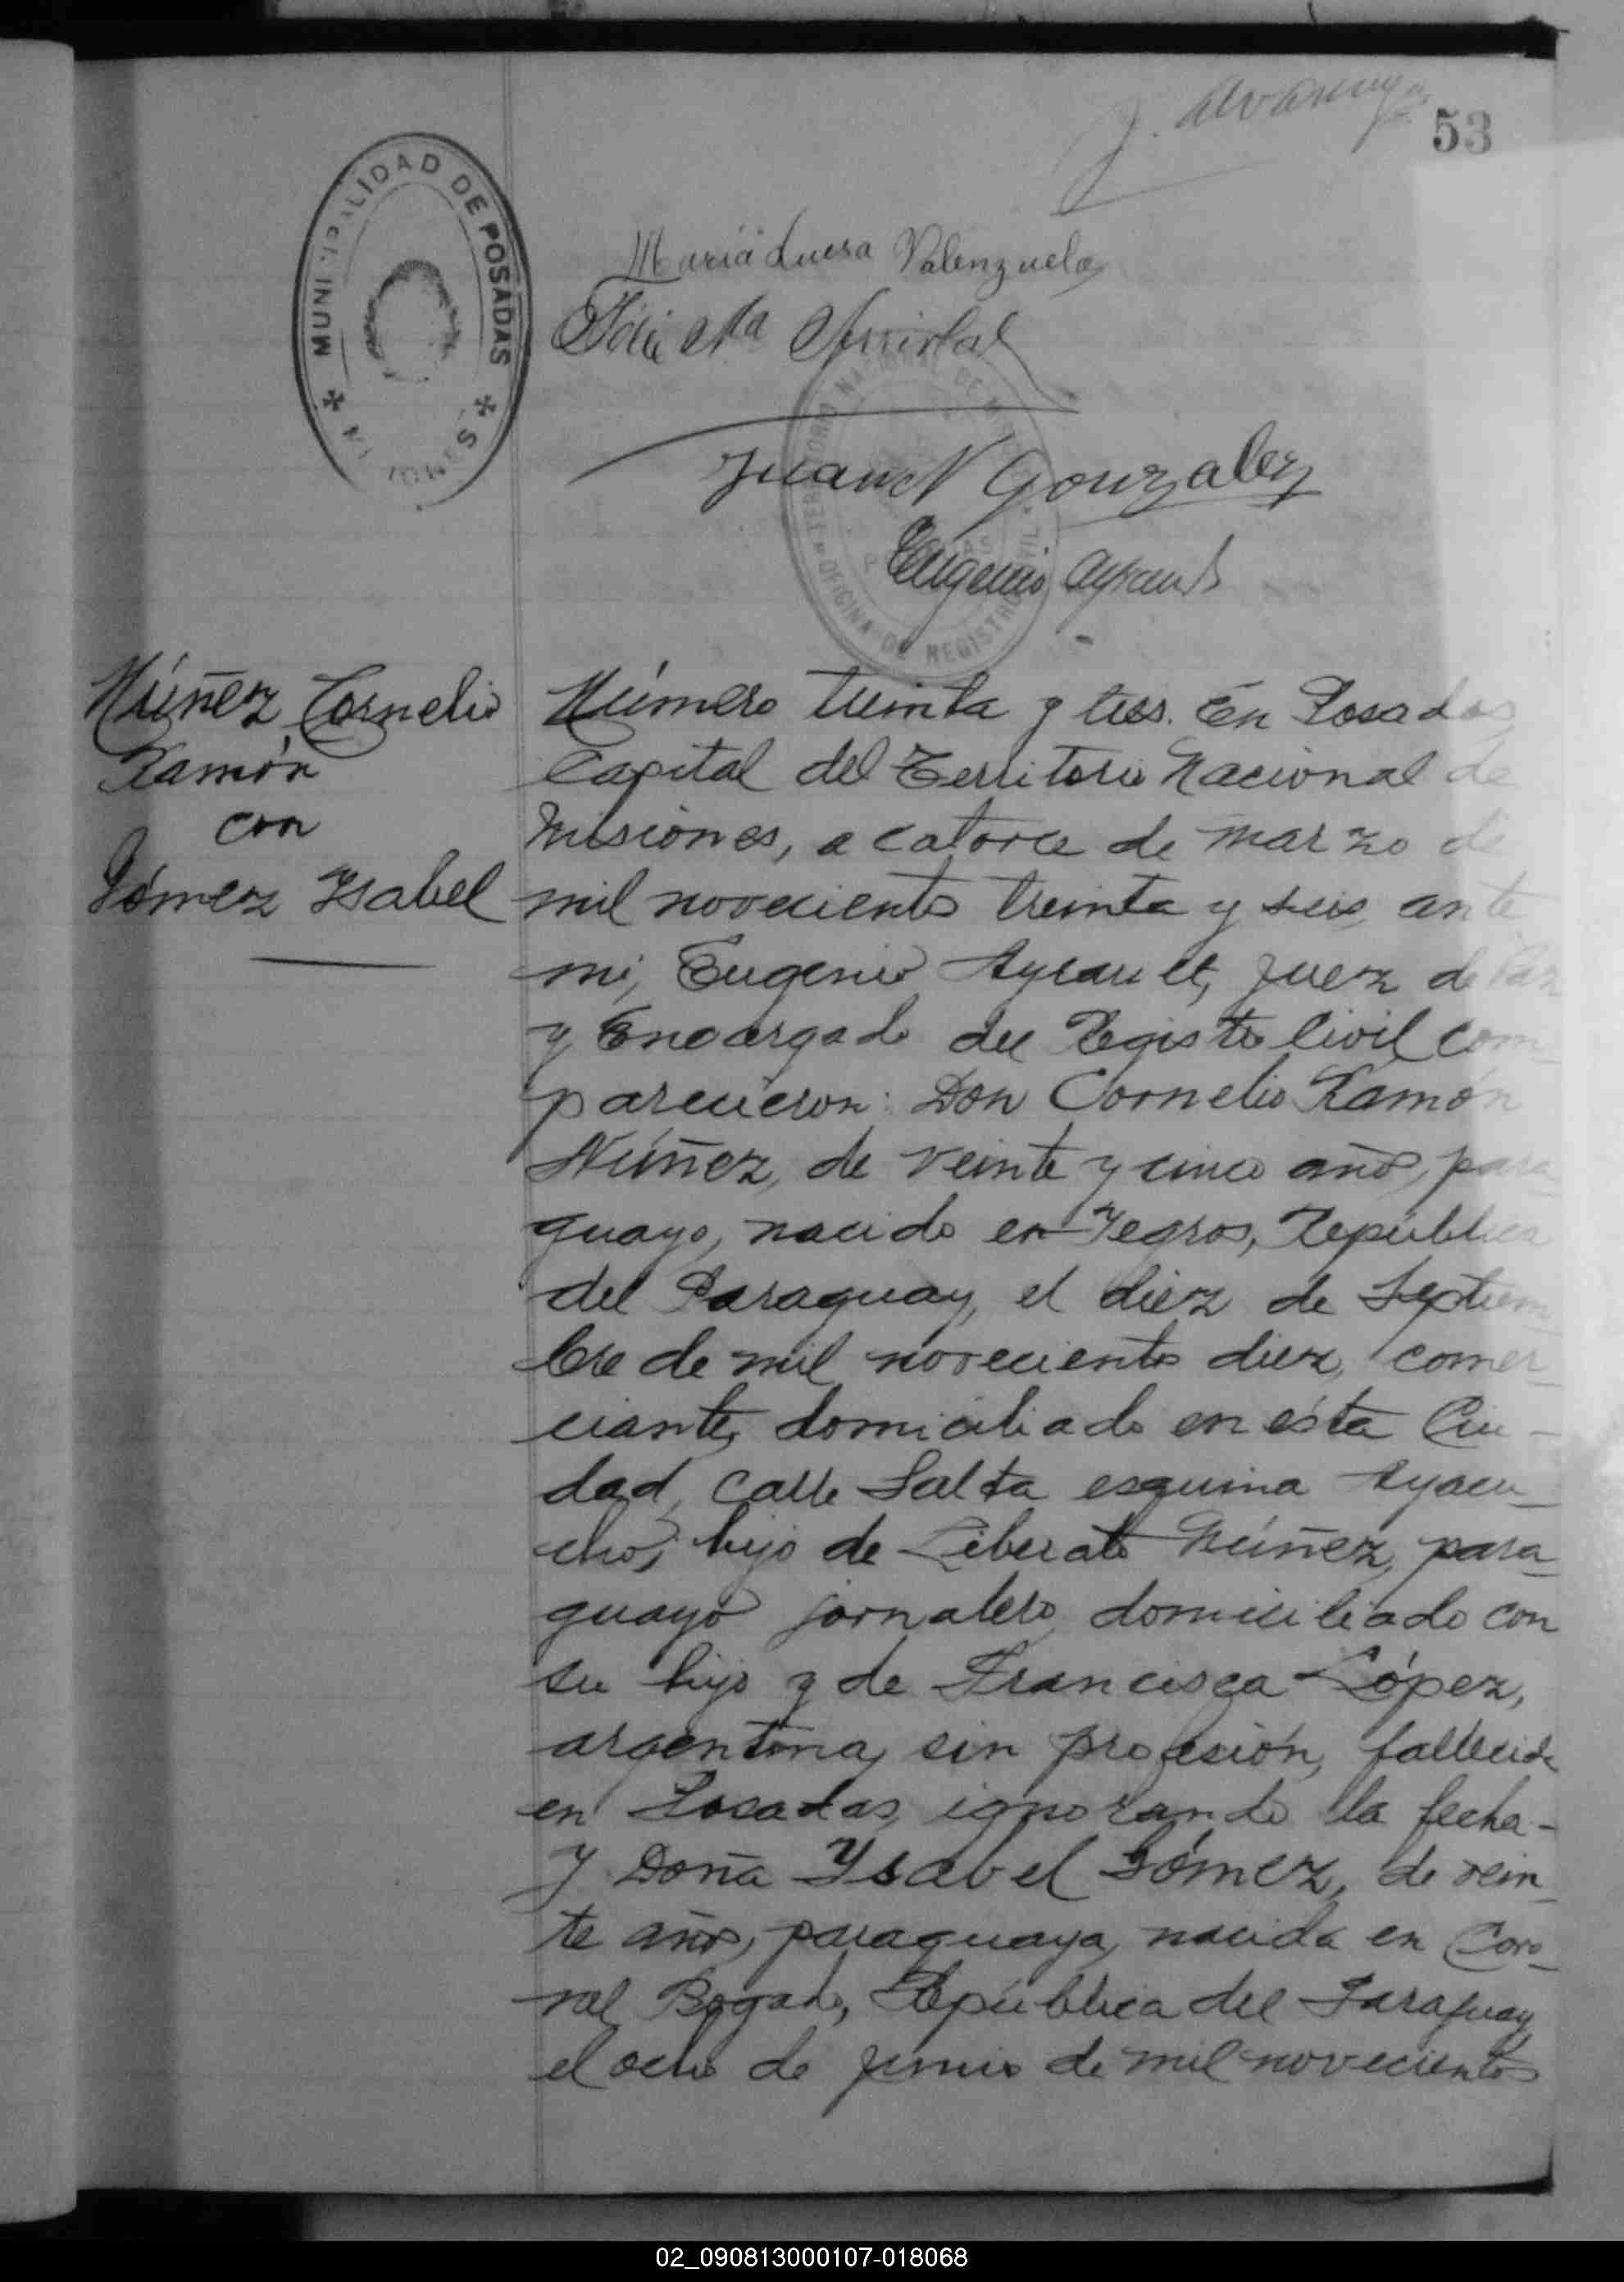 53
MUNICIPALIDAD DE POSADAS
MISIONES
María Luisa Valenzuela
TERRITORIO NACIONAL DE MISIONES
OFICINA DE REGISTRO CIVIL
Juan N Gonzalez
Eugenio Ayrault
Núñez Cornelio
Ramón
con
Gómez Isabel
Número treinta y tres. En Posadas
Capital del Territorio Nacional de
Misiones, a catorce de marzo de
mil novecientos treinta y seis, ante
mi, Eugenio Ayrault, Juez de Paz
y Encargado del Registro Civil com
parecieron: Don Cornelio Ramón
Núñez, de veinte y cinco años, para
guayo, nacido en Yegros, República
del Paraguay, el diez de Septiem
bre de mil novecientos diez, comer
ciante, domiciliado en ésta Ciu-
dad, calle Salta esquina Ayacu-
cho; hijo de Liberato Núñez, para-
guayo jornalero, domiciliado con
su hijo y de Francisca López,
argentina, sin profesión, fallecida
en Posadas, ignorando la fecha-
Y Doña Ysabel Gómez, de vein-
te años, paraguaya, nacida en Coro-
nal Bogado, República del Paraguay
el ocho de junio de mil novecientos
02_090813000107-018068